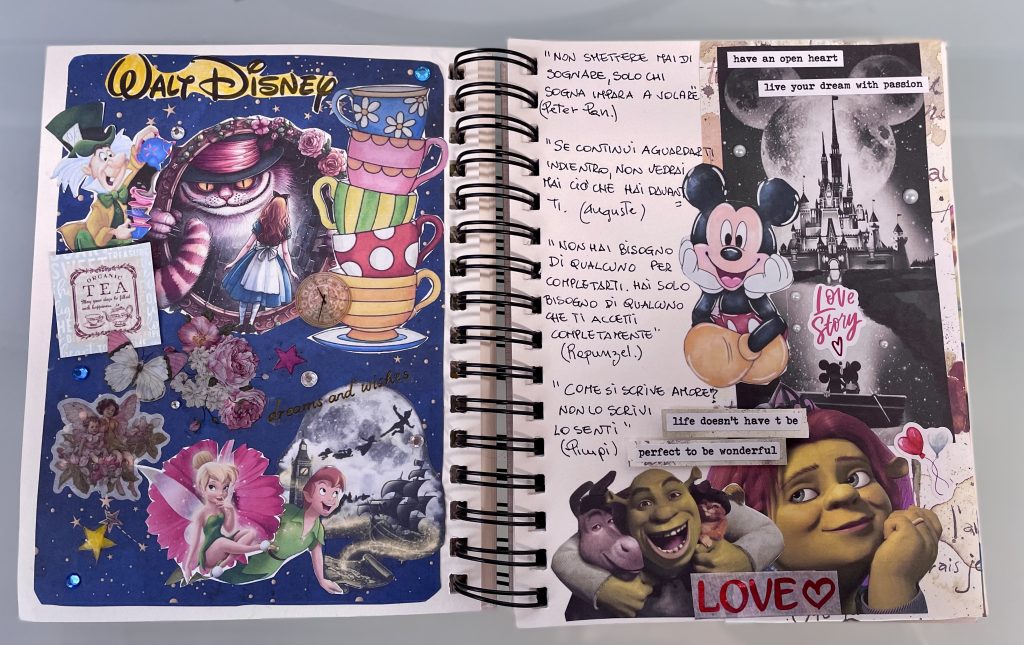 WALT DISNEY
ORGANIC
TEA
May your days be filled
with happiness
dreams and wishes
"NON SMETTERE MAI DI
SOGNARE, SOLO CHI
SOGNA IMPARA A VOLARE"
(Peter Pan.)
"SE CONTINUI A GUARDARTI
INDIENTRO, NON VEDRAI
MAI CIÒ CHE HAI DAVAN
TI." (Auguste)
"NON HAI BISOGNO
DI QUALCUNO PER
COMPLETARTI. HAI SOLO
BISOGNO DI QUALCUNO
CHE TI ACCETTI
COMPLETAMENTE"
(Rapunzel.)
"COME SI SCRIVE AMORE?
NON LO SCRIVI
LO SENTI"
(Pimpi)
have an open heart
live your dream with passion
Love
Story
life doesn't have t be
perfect to be wonderful
LOVE